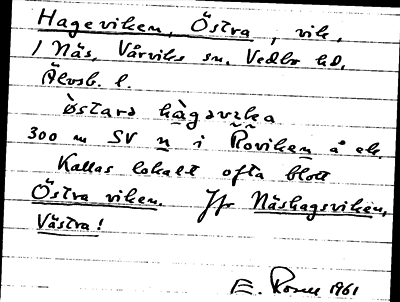 Hageviken, Östra, vik,
i Näs, Vårviks sn. Vedbo hd.
Älvsb. l.
òstara hàgavika
300 m SV n i Roviken å ek.
Kallas lokalt ofta blott
Östra viken. Jfr Näshagsviken,
Västra!
E. 1961